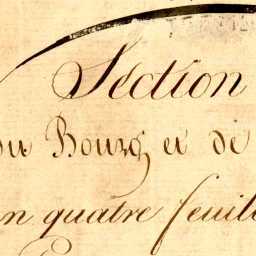 Section
du Bourg et de
en quatre feuil